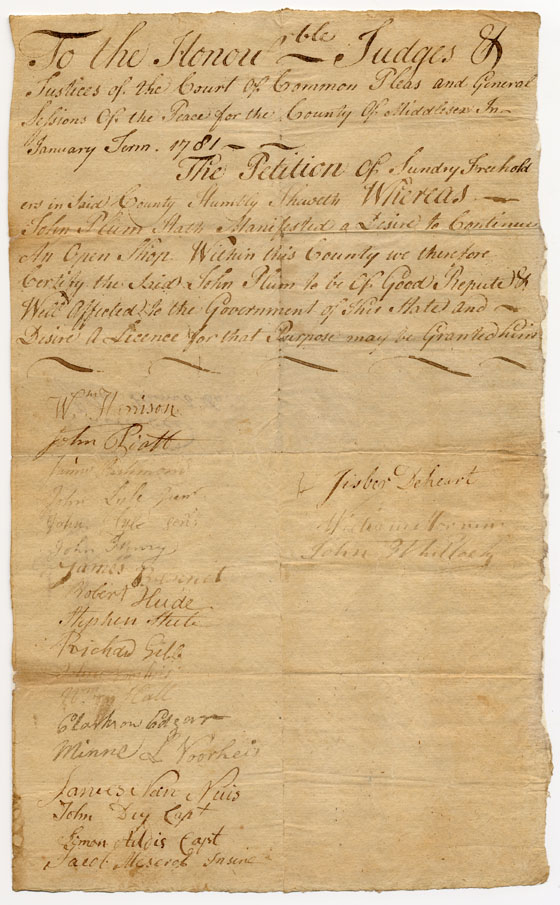 To the Honourble Judges &
Justices of the Court Of Common Pleas and General
Sessions Of the Peace for the County Of Middlesex In
January Term. 1781
The Petition Of Sundry Freehold
ers in Said County Humbly Sheweth Whereas
John Plum Hath Manifested a Desire to Continue
An Open Shop Within this County we therefore
Certify the Said John Plum to be Of Good Repute &
Well Affected to the Government of this State and
Desire A Licence for that Purpose may be Granted him
Wm Harrison
John Piatt
John Lyle Junr
John Lyle Senr
John
James
Robert Hude
Stephen
Richard Gibb
Hall
Clarkson Edgar
Minne L Voorheis
James Van Nuis
John Dey Capt
Simon Addis Capt
Jacob Meseret Insine
Gisber Deheart
William
John Whitlock